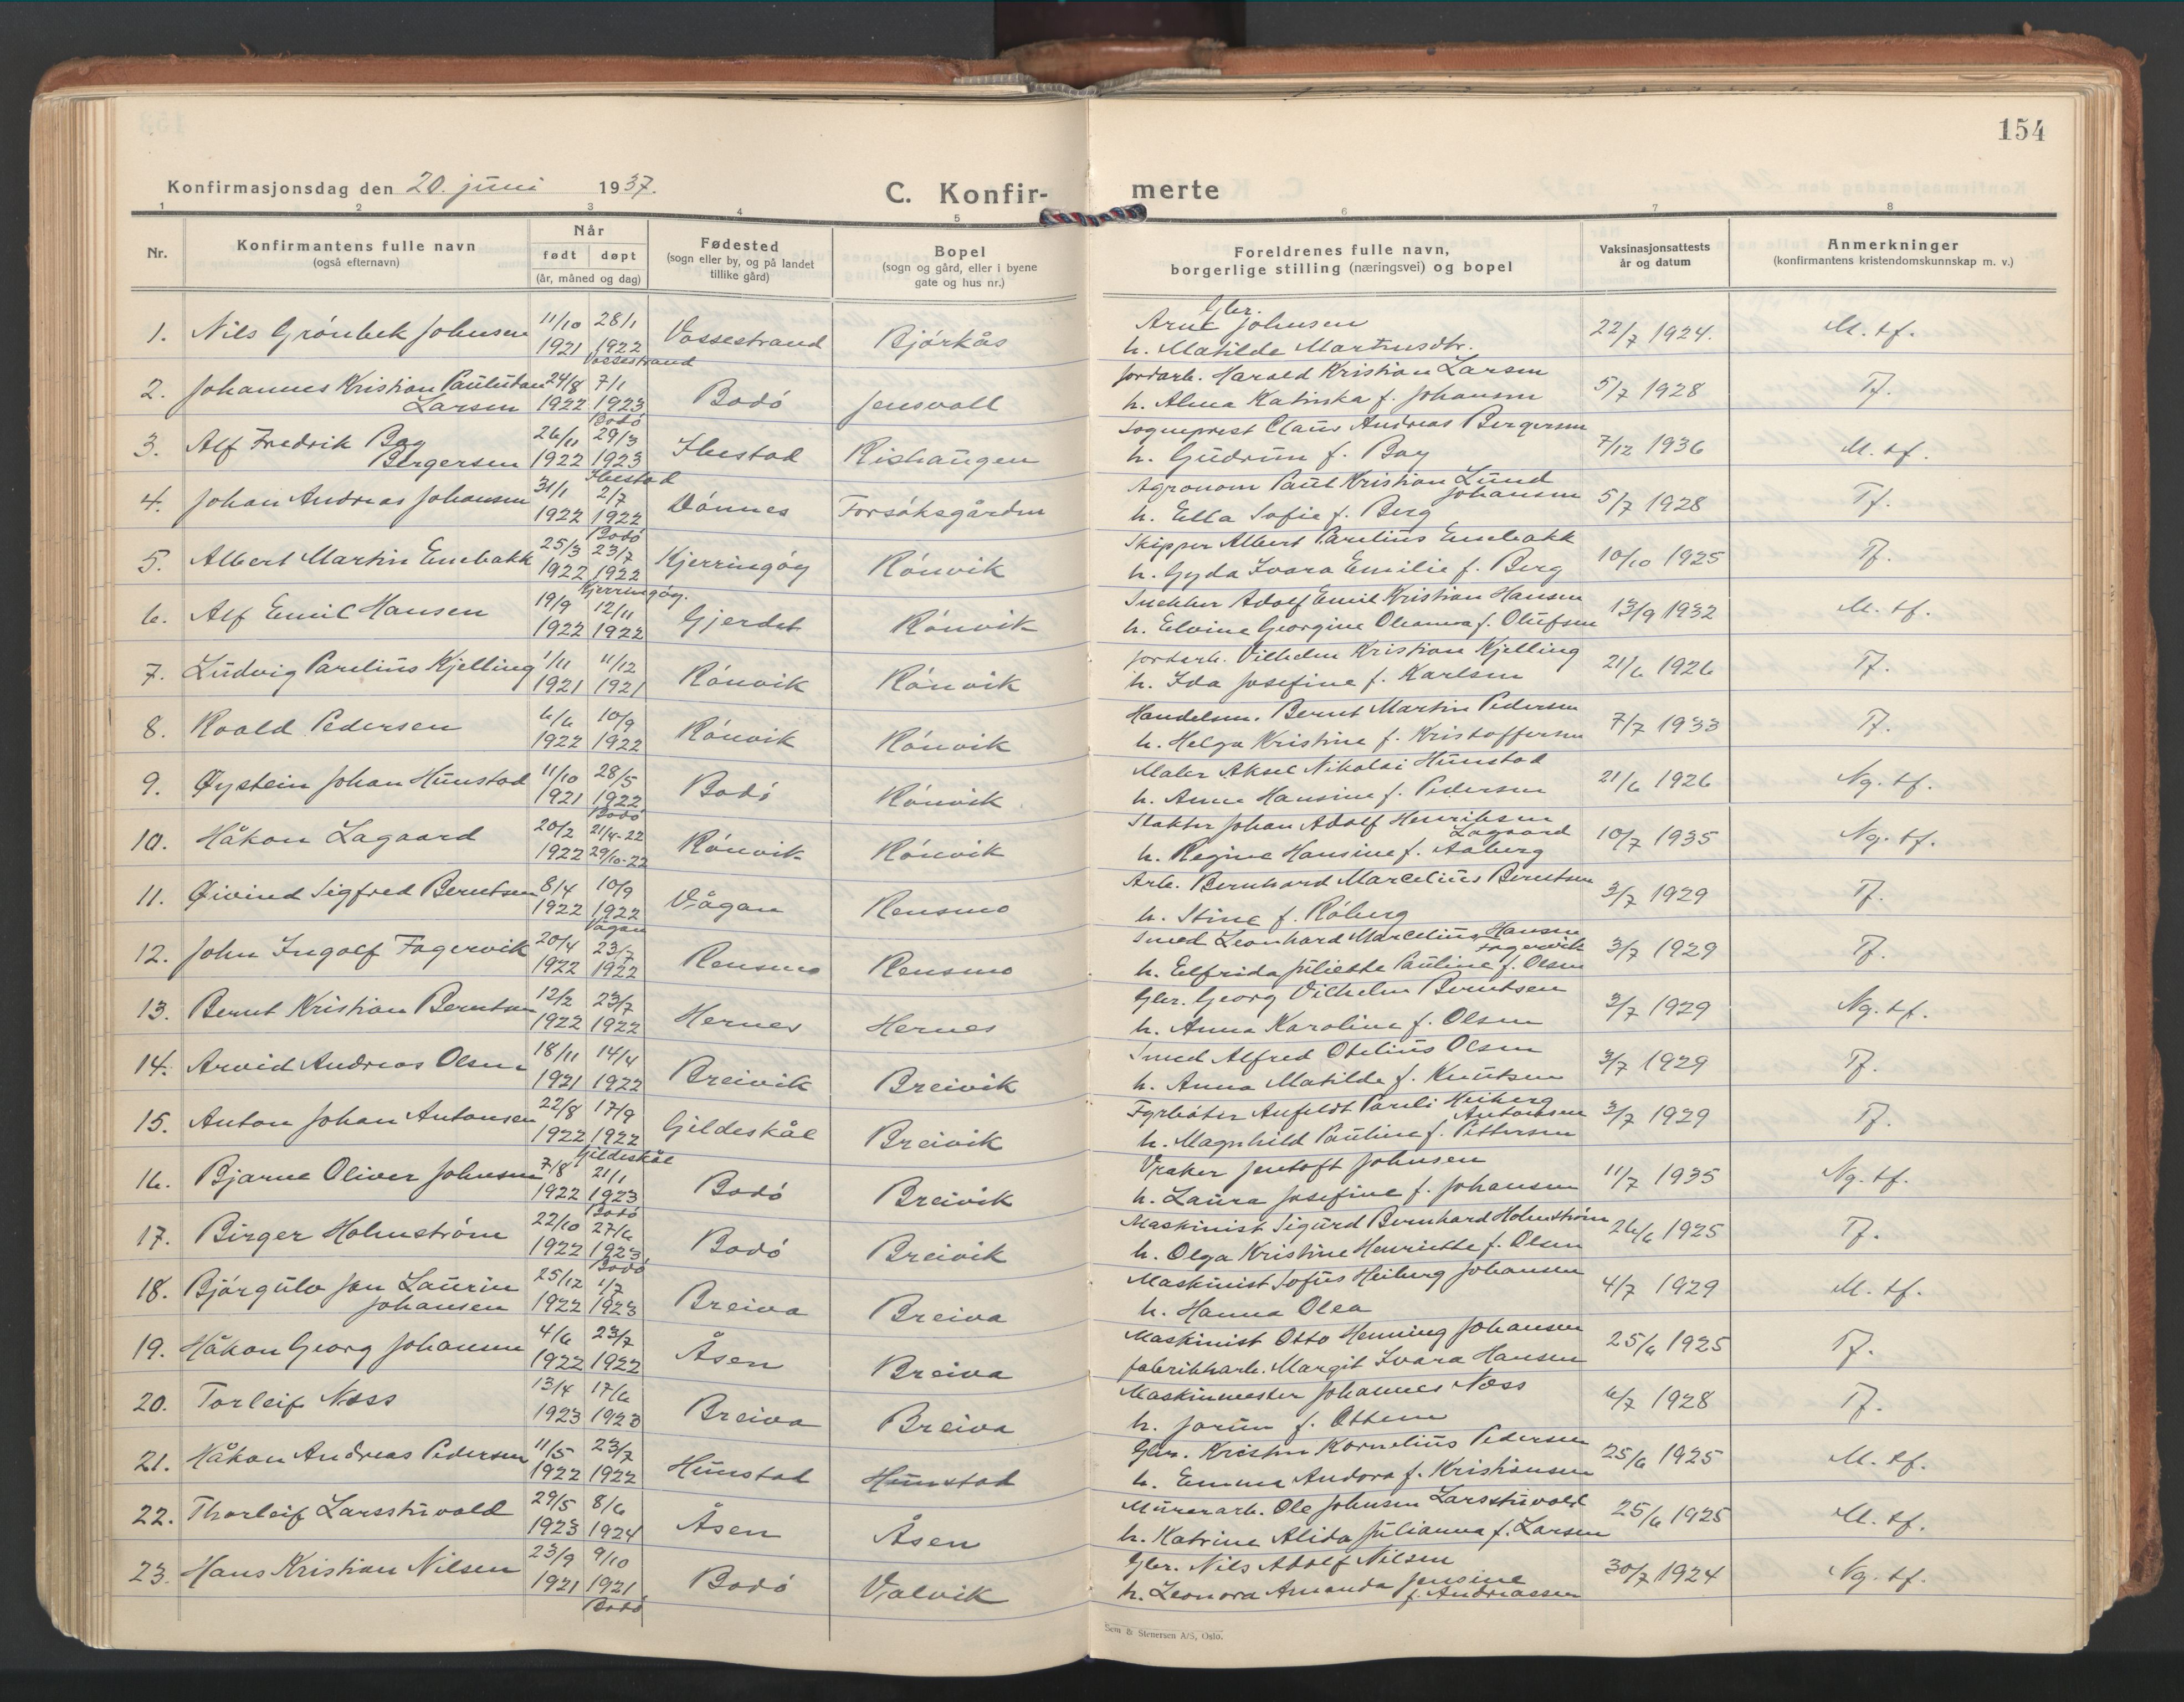 154
Konfirmasjonsdag den 20. juni 1937.
C. Konfir-
merte
1 2 3 4 5 6 7 8
Nr.
Konfirmantens fulle navn
(også efternavn)
Når
født døpt
(år, måned og dag)
Fødested
(sogn eller by, og på landet
tillike gård)
Bopel
(sogn og gård, eller i byene
gate og hus nr.)
Foreldrenes fulle navn,
borgerlige stilling (næringsvei) og bopel
Vaksinasjonsattests
år og datum
Anmerkninger
(konfirmantens kristendomskunnskap m. v.)
1. Nils Grönbek Johnsen 11/10 1921 28/1 1922 Vossestrand Vossestrand Bjørkås Gbr. Arne Johnsen
h. Matilde Martinusdtr. 22/7 1924. M. tf.
2. Johannes Kristian Larsen 24/8 1922 7/1 1923 Bodö Bodö Jensvoll Jordarb. Harald Kristian Larsen
h. Alma Katinka f. Johansen 5/7 1928 Tf.
3. Alf Fredrik Bay Bergersen 26/11 1922 29/3 1923 Ibestad Ibestad Rishaugen Sogneprest Claus Andreas Bergersen
h. Gudrun f. Bay 7/12 1936 M. tf.
4. Johan Andreas Johansen 31/1 1922 2/7 1922 Bodö Dönnes Forsöksgården Agronom Paul Kristian Lund Johansen
h. Ella Sofie f. Berg 5/7 1928 Tf.
5. Albert Martin Enebakk 25/3 1922 23/7 1922 Kjerringöy. Kjerringöy Rönvik Skipper Albert Parelius Enebakk
h. Gyda Ivara Emilie f. Berg 10/10 1925 Tf.
6. Alf Emil Hansen 19/9 1922 12/11 1922 Gjerdet Rönvik Snekker Adolf Emil Kristian Hansen
h. Elvine Georgine Oleanna f. Olufsen 13/9 1932 M. tf.
7. Ludvig Parelius Kjelling 1/11 1921 11/12 1921 Rönvik Rönvik Jordarb. Vilhelm Kristian Kjelling
h. Ida Josefine f. Karlsen 21/6 1926 Tf.
8. Roald Pedersen 6/6 1922 10/9 1922 Rönvik Rönvik Handelsm. Bernt Martin Pedersen
h. Helga Kristine f. Kristoffersen 7/7 1933 Tf.
9. Øystein Johan Hunstad 11/10 1921 28/5 1922 Bodö Bodö Rönvik Maler Aksel Nikolai Hunstad
h. Anna Hansine f. Pedersen 21/6 1926 Ng. tf.
10. Håkon Lagaard 20/2 1922 21/4-22 29/10-22 Rönvik Rönvik Slakter Johan Adolf Henriksen Lagaard
h. Regine Hansine f. Aaberg 10/7 1935 Ng. tf.
11. Øivind Sigfred Berntsen 8/4 1922 10/9 1922 Vågan Vågan Rensmo Arb. Bernhard Marcelius Berntsen
h. Stine f. Röberg 3/7 1929 Tf.
12. John Ingolf Fagervik 20/4 1922 23/7 1922 Rensmo Rensmo Smed Leonhard Marcelius Hansen Fagervik
h. Elfrida Juliette Pauline f. Olsen 3/7 1929 Tf.
13. Bernt Kristian Berntsen 12/2 1922 23/7 1922 Hernes Hernes Gbr. Georg Vilhelm Berntsen
h. Anna Karolina f. Olsen 3/7 1929 Ng. tf.
14. Arvid Andreas Olsen 18/11 1921 14/4 1922 Breivik Breivik Smed Alfred Otelius Olsen
h. Anna Matilde f. Knutsen 3/7 1929 Tf.
15. Anton Johan Antonsen 22/8 1922 17/9 1922 Gildeskål Gildeskål Breivik Fyrböter Anfeldt Pareli Heiberg Antonsen
h. Magnhild Pauline f. Pettersen 3/7 1929 Tf.
16. Bjarne Oliver Johnsen 7/8 1922 21/1 1923 Bodö Bodö Breivik Vraker Jentoft Johnsen
h. Laura Josefine f. Johansen 11/7 1935 Ng. tf.
17. Birger Holmström 22/10 1922 27/6 1923. Bodö Bodö Breivik Maskinist Sigurd Bernhard Holmström
h. Olga Kristine Henriette f. Olsen 26/6 1925 Tf.
18. Björgulv Jan Laurin Johansen 25/12 1922 1/7 1923 Breiva Breiva Maskinist Sofus Heiberg Johansen
h. Hanna Olea 4/7 1929 M. tf.
19. Håkon Georg Johansen 4/6 1922 23/7 1922 Åsen Breiva Maskinist Otto Henning Johansen
fabrikkarb. Margit Ivara Hansen 25/6 1925 Tf.
20. Torleif Næss 13/4 1923 17/6 1923 Breiva Breiva Maskinmester Johannes Næss
h. Jorun f. Ottem 6/7 1928 Tf.
21. Håkon Andreas Pedersen 11/5 1922 23/7 1922 Hunstad Hunstad Gbr. Kristen Kornelius Pedersen
h. Emma Andora f. Kristiansen 25/6 1925 M. tf.
22. Thorleif Larsstuvold 29/5 1923 8/6 1924 Åsen Åsen Murerarb. Ole Johnsen Larsstuvold
h. Katrine Alida Julianna f. Larsen 25/6 1925 M. tf.
23. Hans Kristian Nilsen 23/9 1921 9/10 1921. Bodö Bodö Valvik Gbr. Nils Adolf Nilsen
h. Leonora Amanda Jensine f. Andreassen 30/7 1924 Ng. tf.
Sem & Stenersen A/S, Oslo.